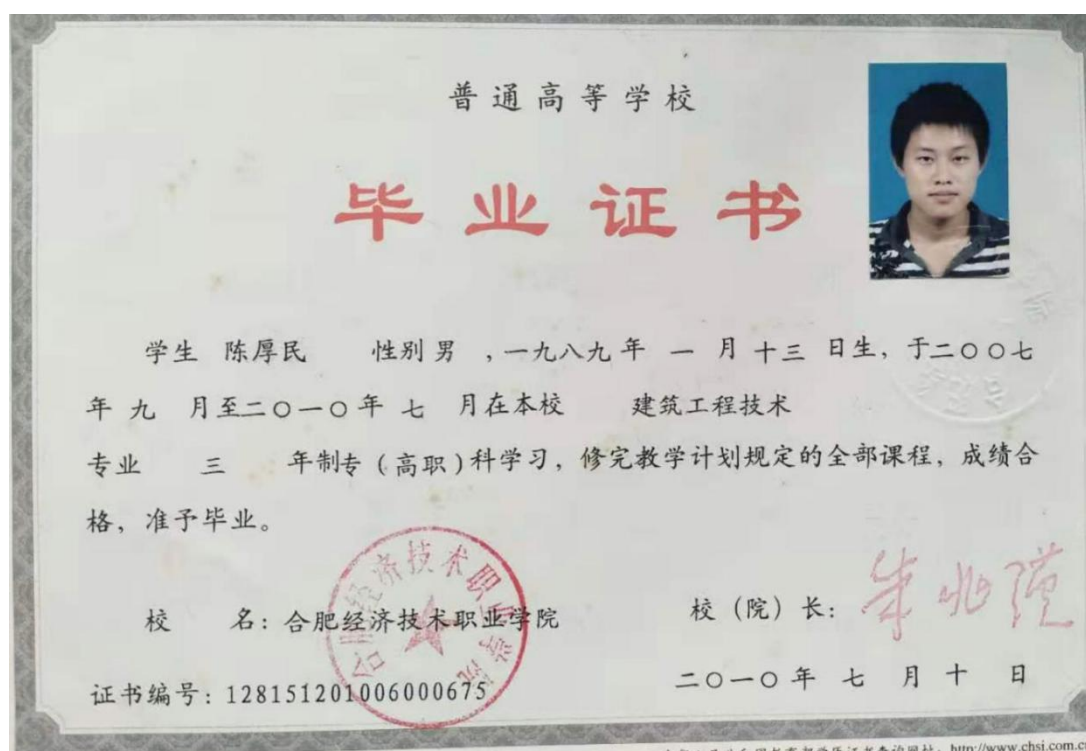 普通高等学校
毕业证书
学生 陈厚民 性别 男 ,一九八九年 一 月 十三 日生, 于二〇〇七
年 九 月至二〇一〇年 七 月在本校 建筑工程技术
专业 三 年制专(高职)科学习, 修完教学计划规定的全部课程, 成绩合
格, 准予毕业。
合肥经济技术职业学院
校 名: 合肥经济技术职业学院
校(院)长:
证书编号: 128151201006000675
二〇一〇年 七 月 十 日
学历证书查询网址: http://www.chsi.com.c